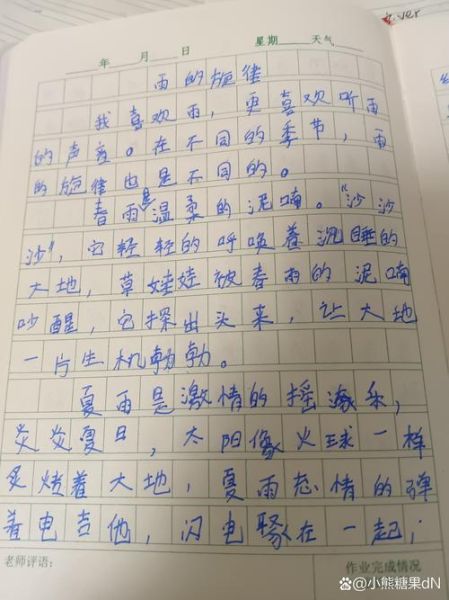 ver
年 月 日 星期 天气
雨的旋律
我喜欢雨，更喜欢听雨
的声音。在不同的季节，雨
的旋律也是不同的。
春雨是温柔的泥喃。“沙沙
沙”，它轻轻的呼唤着沉睡的
大地，草娃娃被春雨的泥喃
吵醒，它探出头来，让大地
一片生机勃勃。
夏雨是激情的摇滚乐，
炎炎夏日，太阳像火球一样
炙烤着大地，夏雨忘情的弹
着电吉他，闪电聚在一起；
老师评语：
作业完成情况
@小熊糖果dN